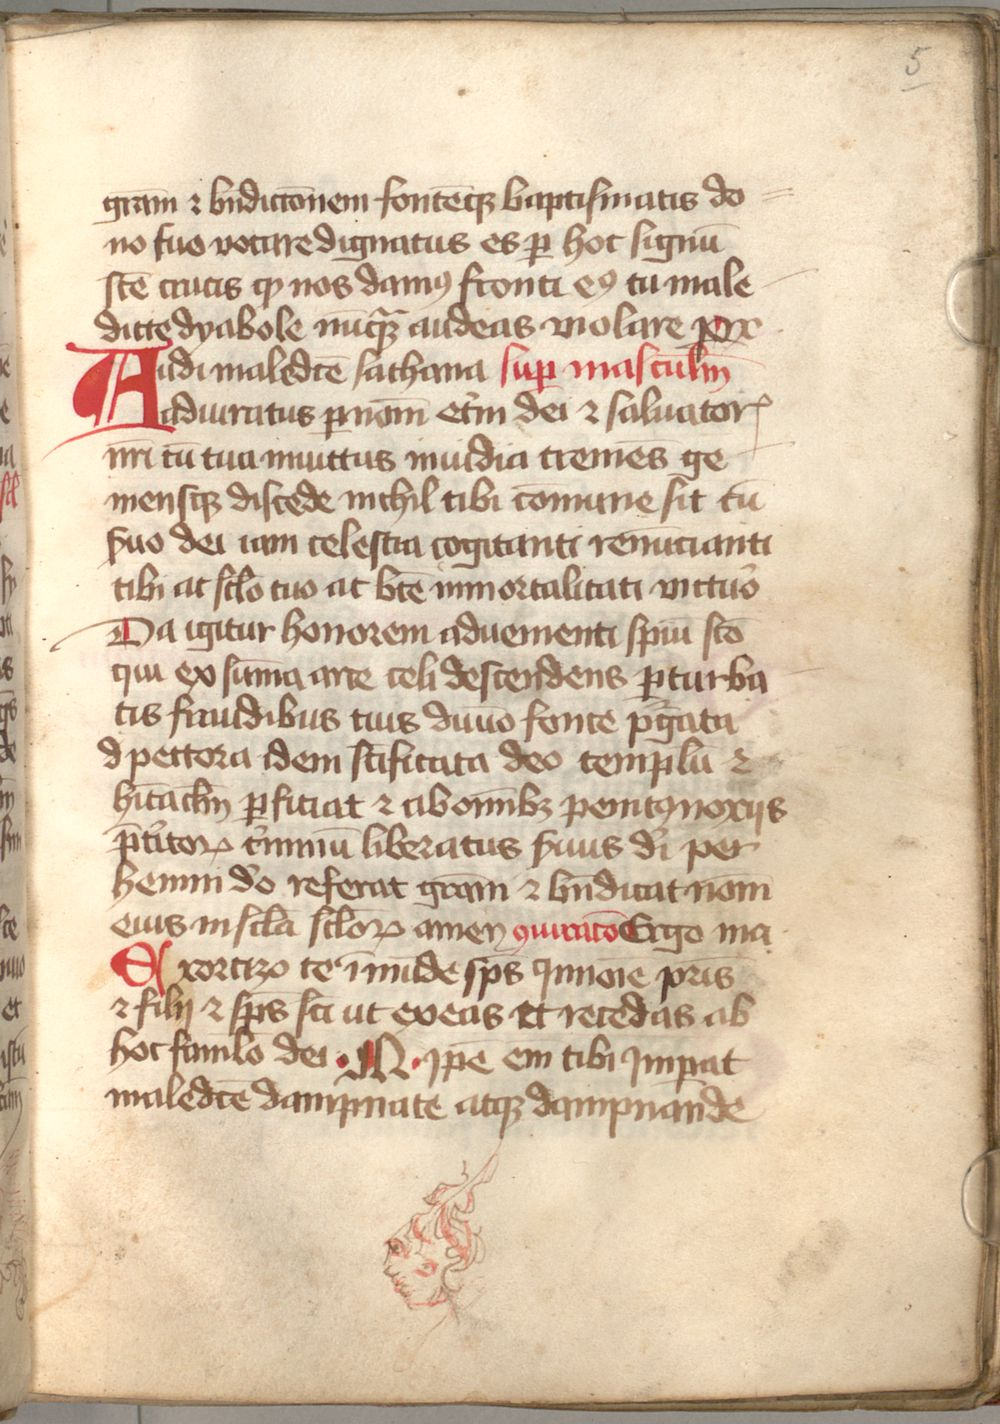 5
grām ⁊ bn̄dictōnem fontēqȝ baptismatis do
no suo vocare dignatus es ꝑ hoc signū
scē crucis qd nos damꝰ fronti eꝰ tu male
dicte dyabole nūqȝ audeas violare
Audi maledcē sathana sup masculm̄
adiuratus ꝑ nom̄ et̄ni dei ⁊ saluatorꝭ
nr̄i cū tua inuictus inuidia tremēs ge
mensqȝ discede nichil tibi comune sit cū
s̄uo dei iam celestia cogitanti renūcianti
tibi ac sclo tuo ac btē inmortalitati victur̄o
Da igitur honorem aduenienti spiū scō
qui ex sūma arce celi descendens ꝑturba
tis fraudibus tuis diuīo fonte pʳgata
d pectora idem sc̄ificata deo templū ⁊
hitāclm̄ ꝑficiat ⁊ ab om̄ibȝ penitꝰ noxijs
p̄t̄itorꝝ c̄iminū liberatus s̄uus dī per
henni dō referat grām ⁊ bn̄dicat nom̄
eius in scl̄a sclorꝝ amen ꝯiuracō Ergo ma
Exorcizo te īmūde sp̄s ī nōīe pr̄is
⁊ filij ⁊ sp̄s sc̄i ut exeas et recedas ab
hoc famlo dei · N · ip̄e em̄ tibi imꝑat
maledcē dampnate atqȝ dampnande